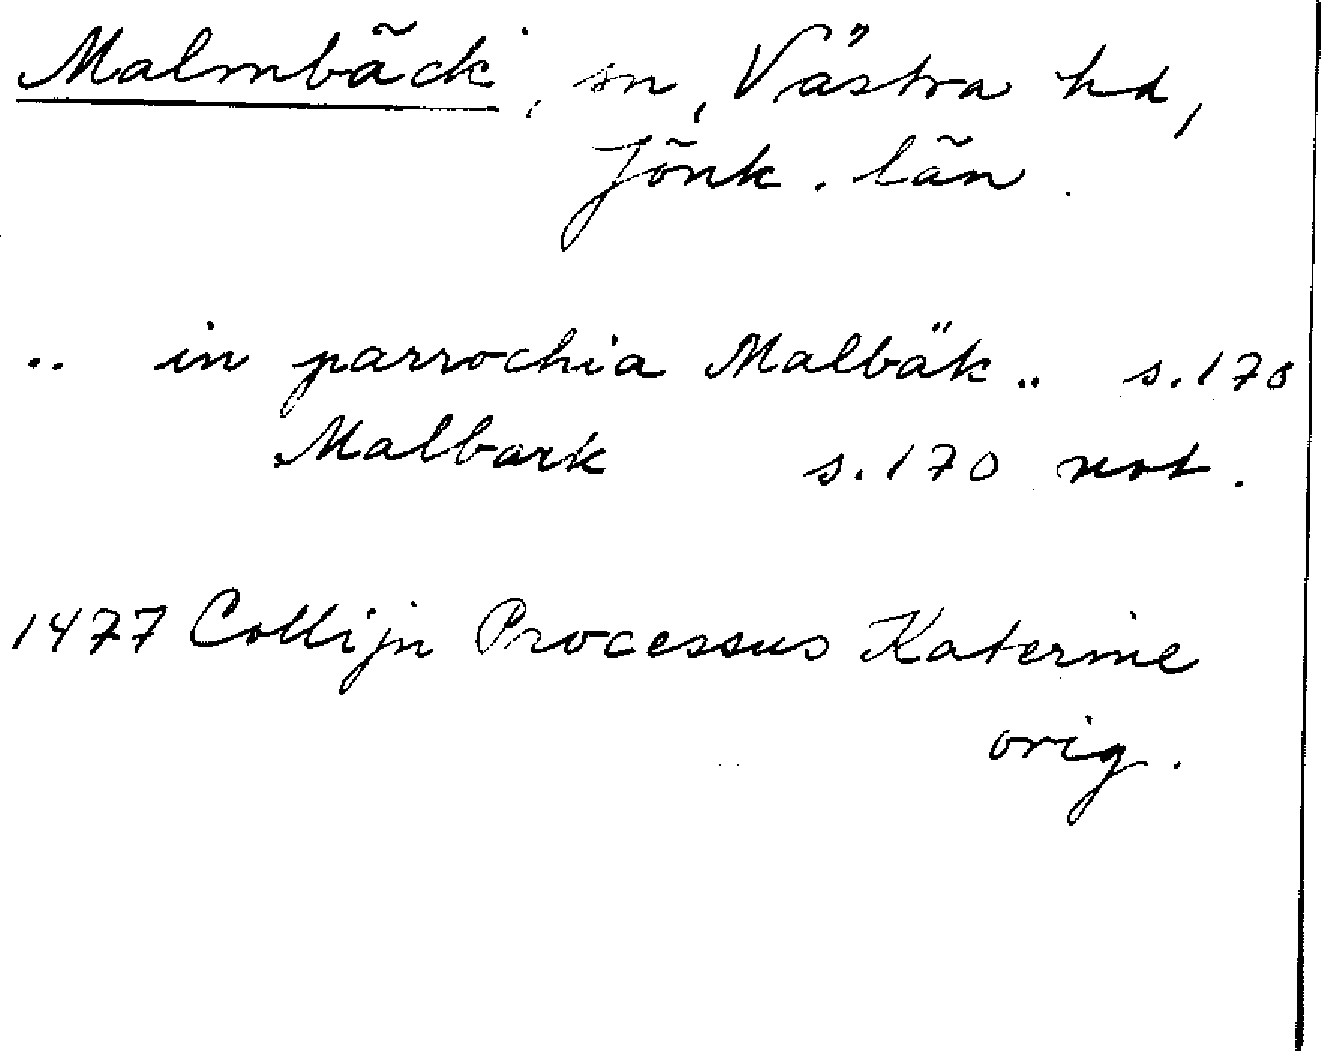 Malmbäck, sn, Västra hd,
Jönk. län.
.. in parrochia Malbäk.. s. 170
Malbark s. 170 not.
1477 Collijn Processus Katerine
orig.